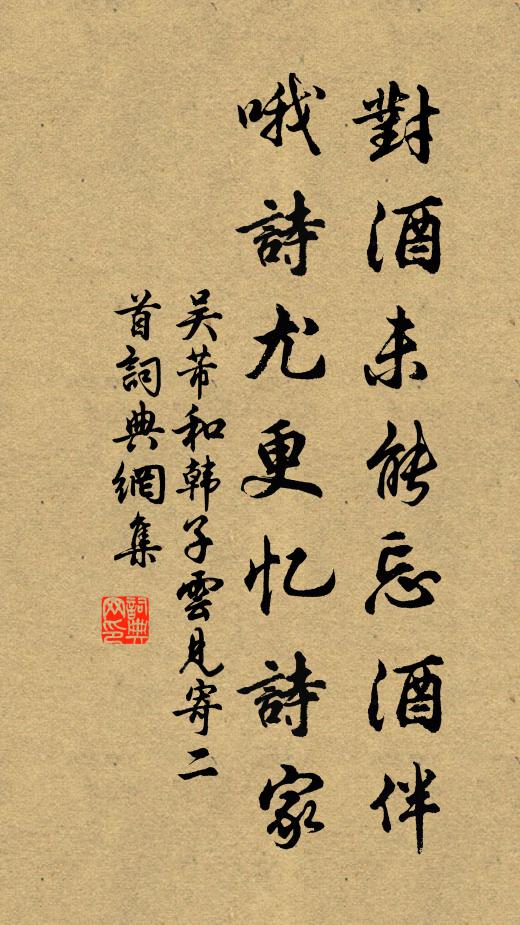 對酒未能忘酒伴
哦詩尤更忆詩家
吴芾和韩子雲見寄二
首詞典網集
詞典
网印